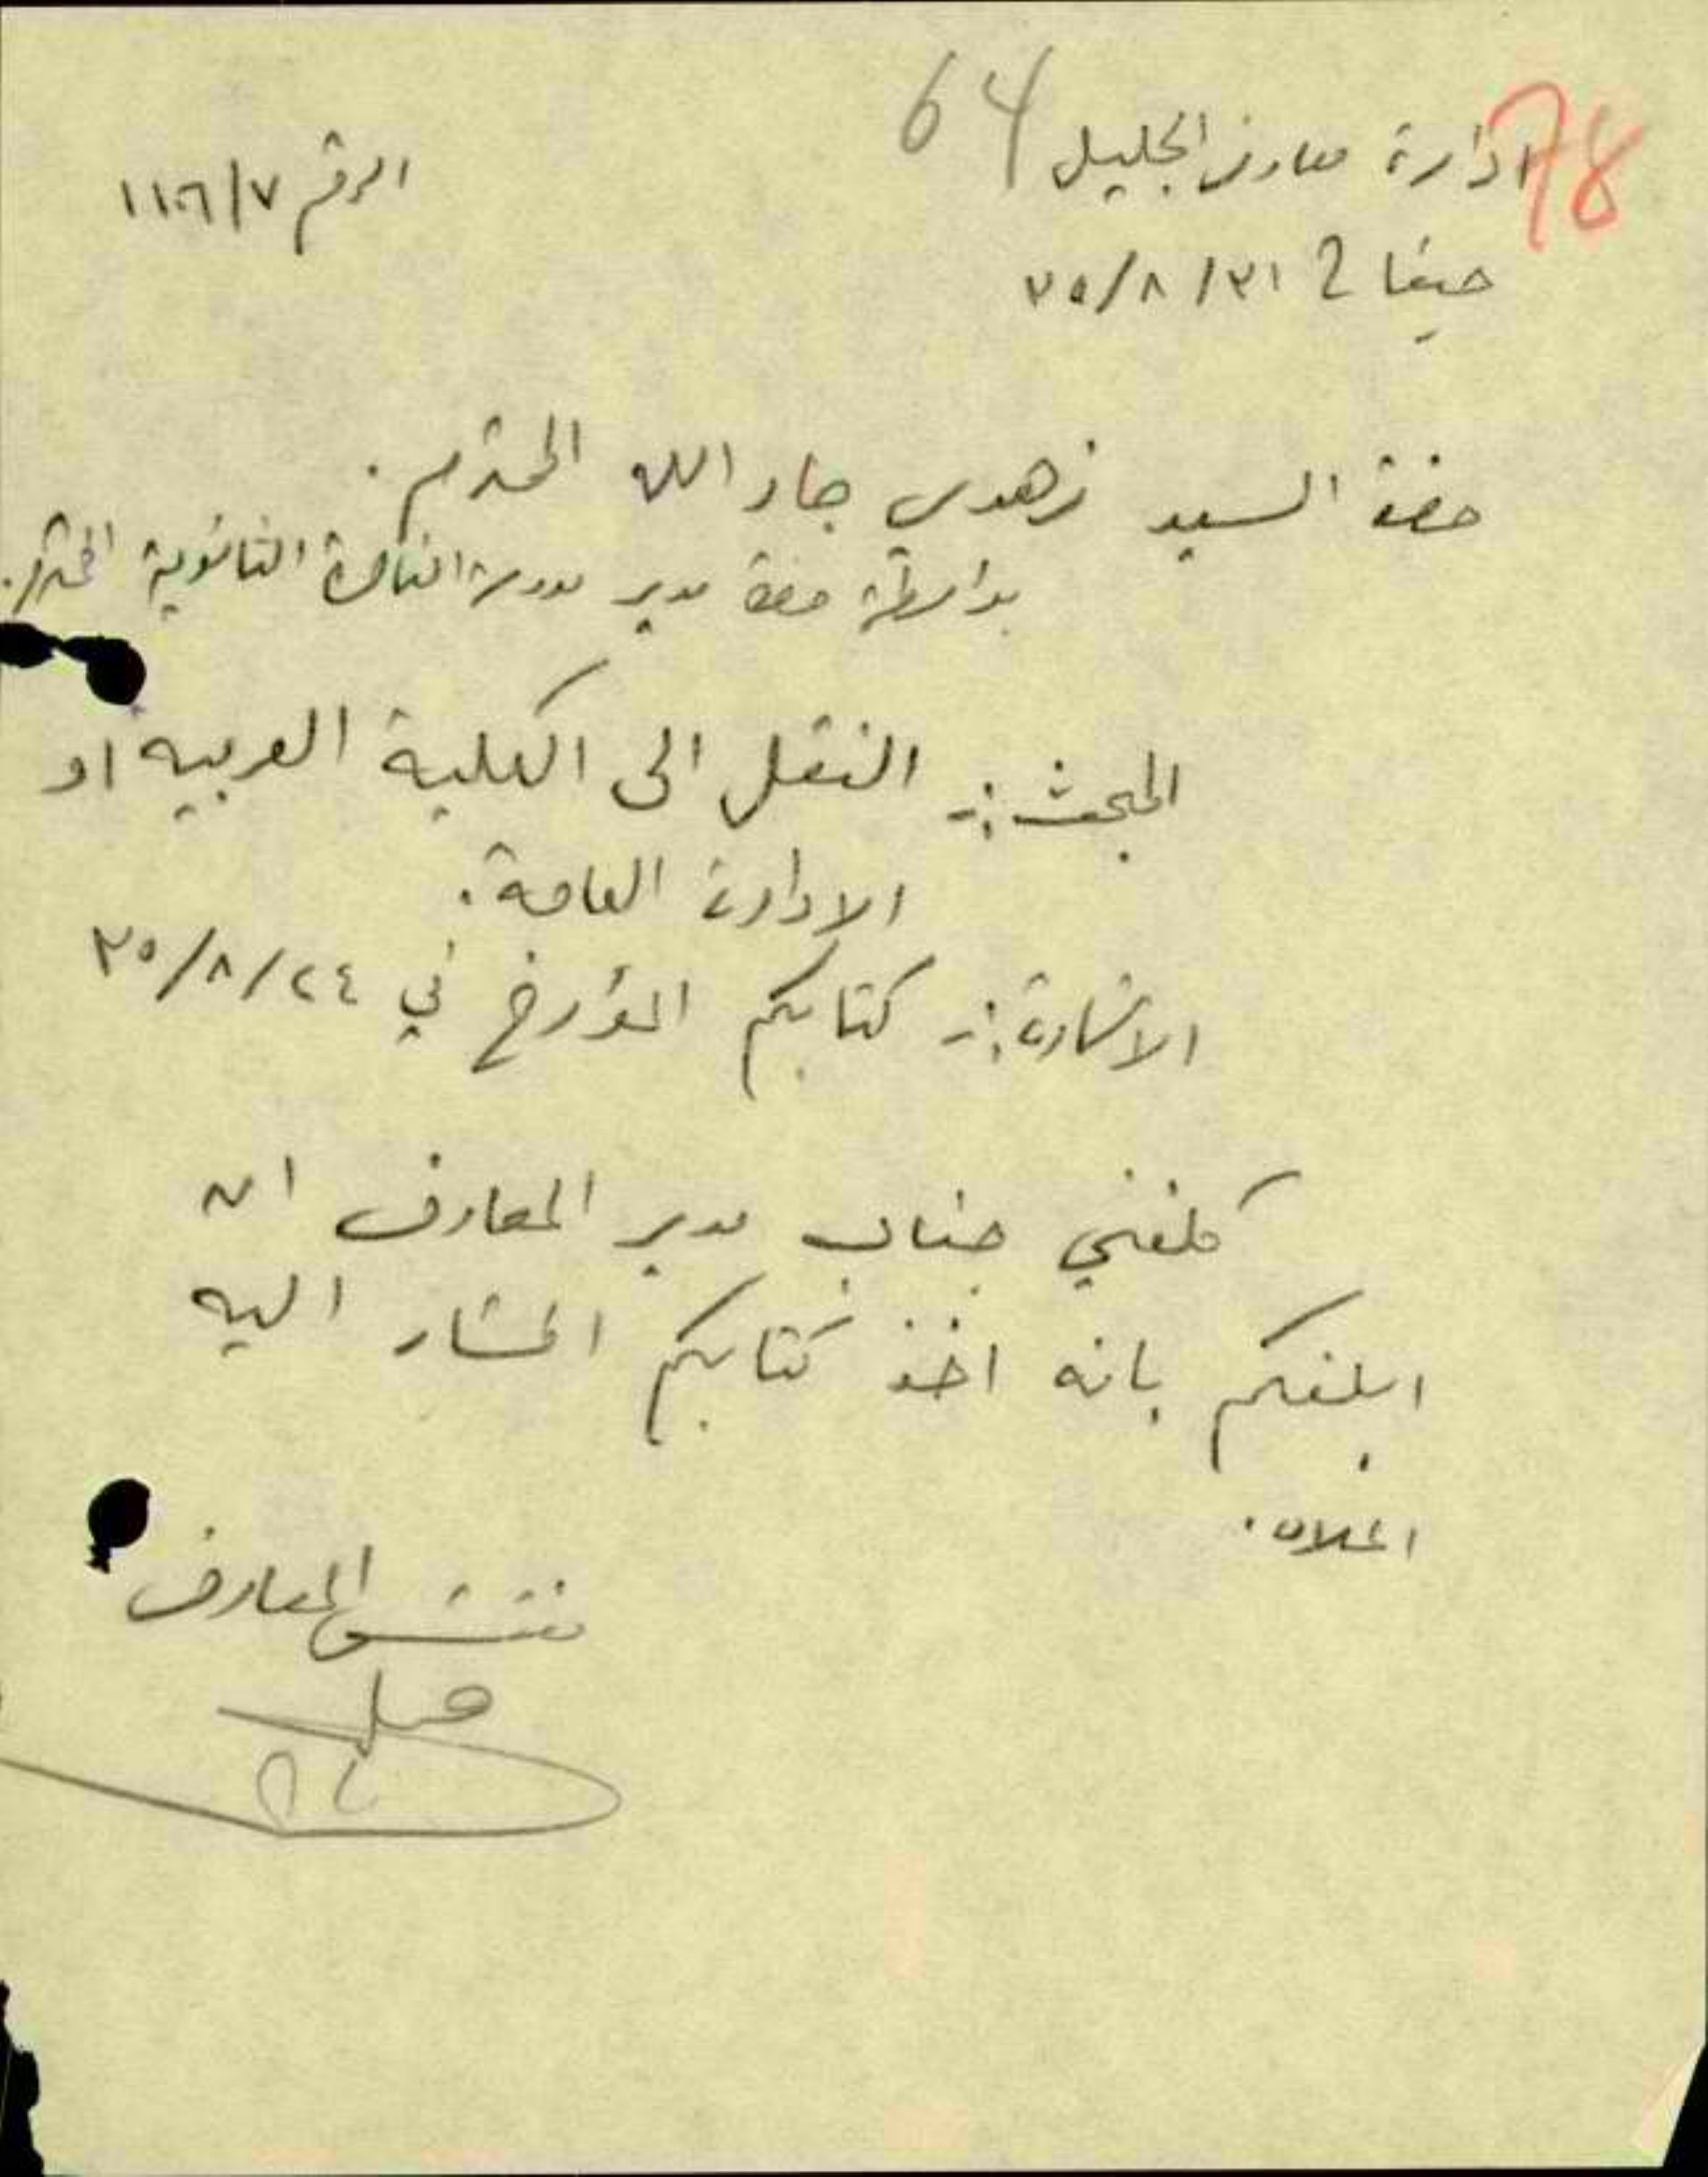 78
64
ادارة معارف الجليل
الرقم ١١٠٦/٧
حيفا في ٣١/٨/٣٥
حضرة السيد زهدي جار الله المحترم.
بواسطة حضرة مدير مدرسة الناصرة الثانوية المحترم.
المبحث :- النقل الى الكلية العربيه او
الادارة العامة.
الاشارة :- كتابكم المؤرخ في ٢٤/٨/٣٥
كلفني جناب مدير المعارف ان
ابلغكم بانه اخذ كتابكم المشار اليه
اعلاه.
مفتش المعارف